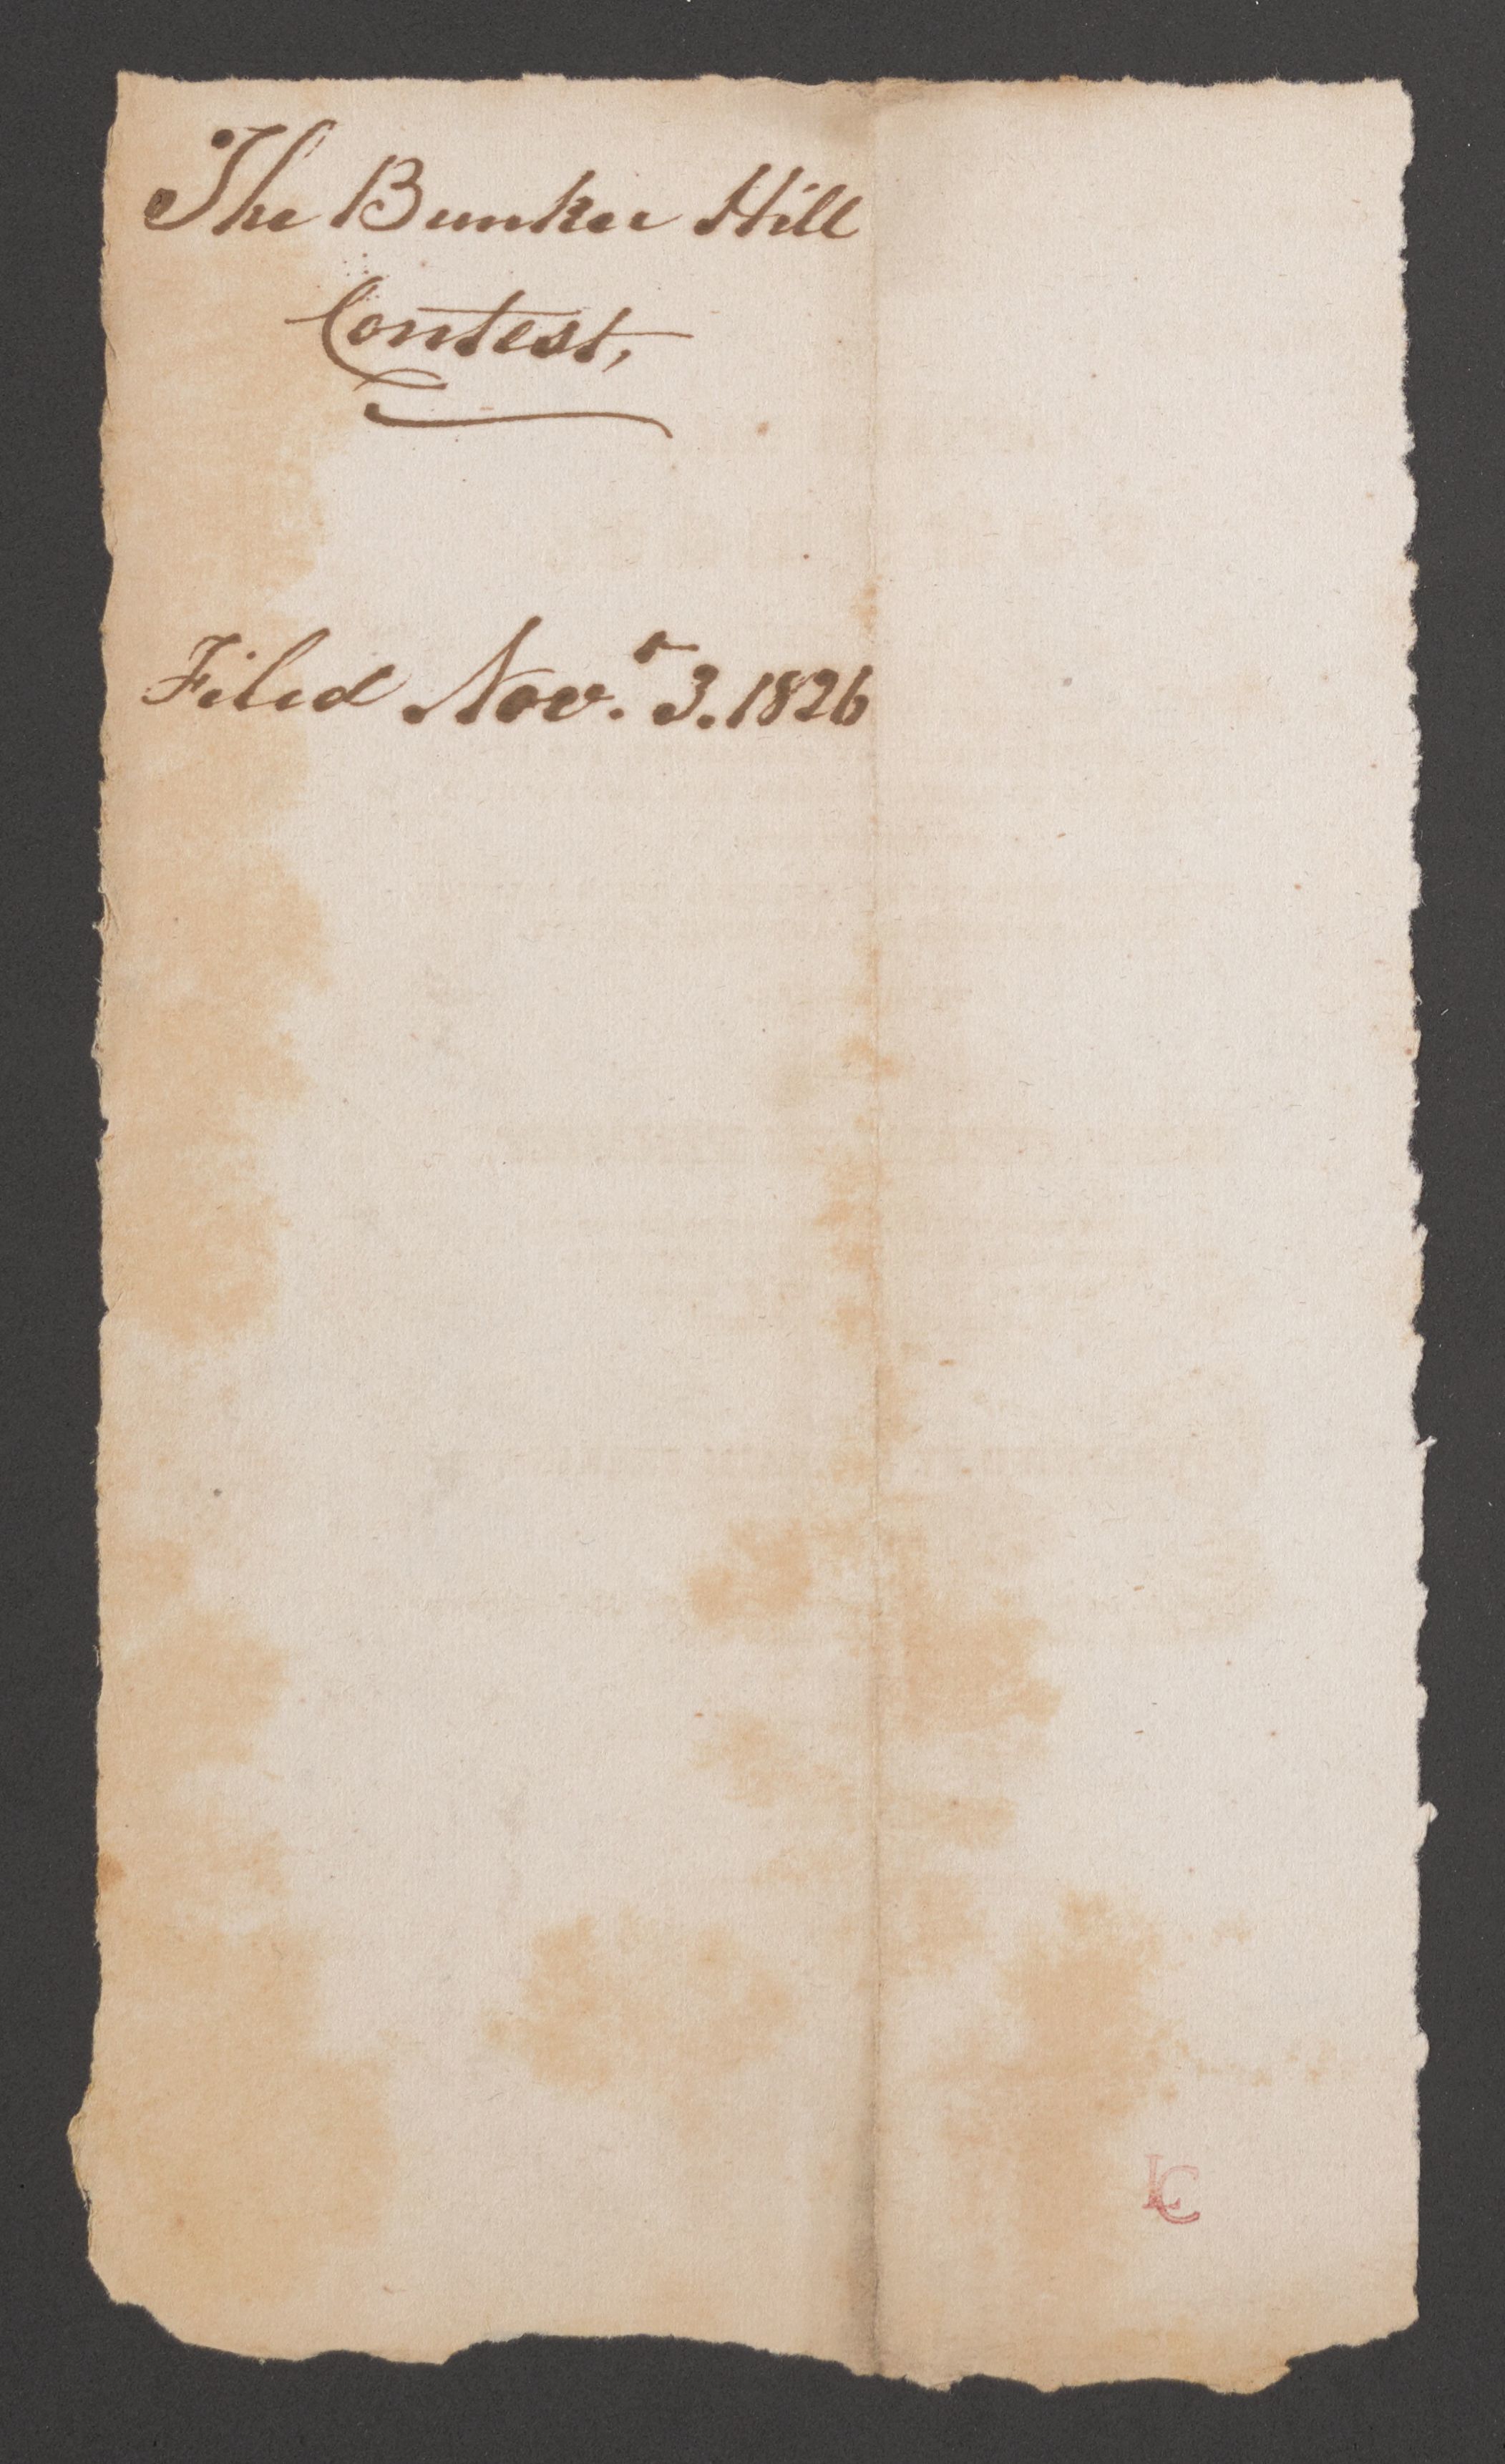 The Bunker Hill
Contest,
Filed Nov.r 3. 1826
LC